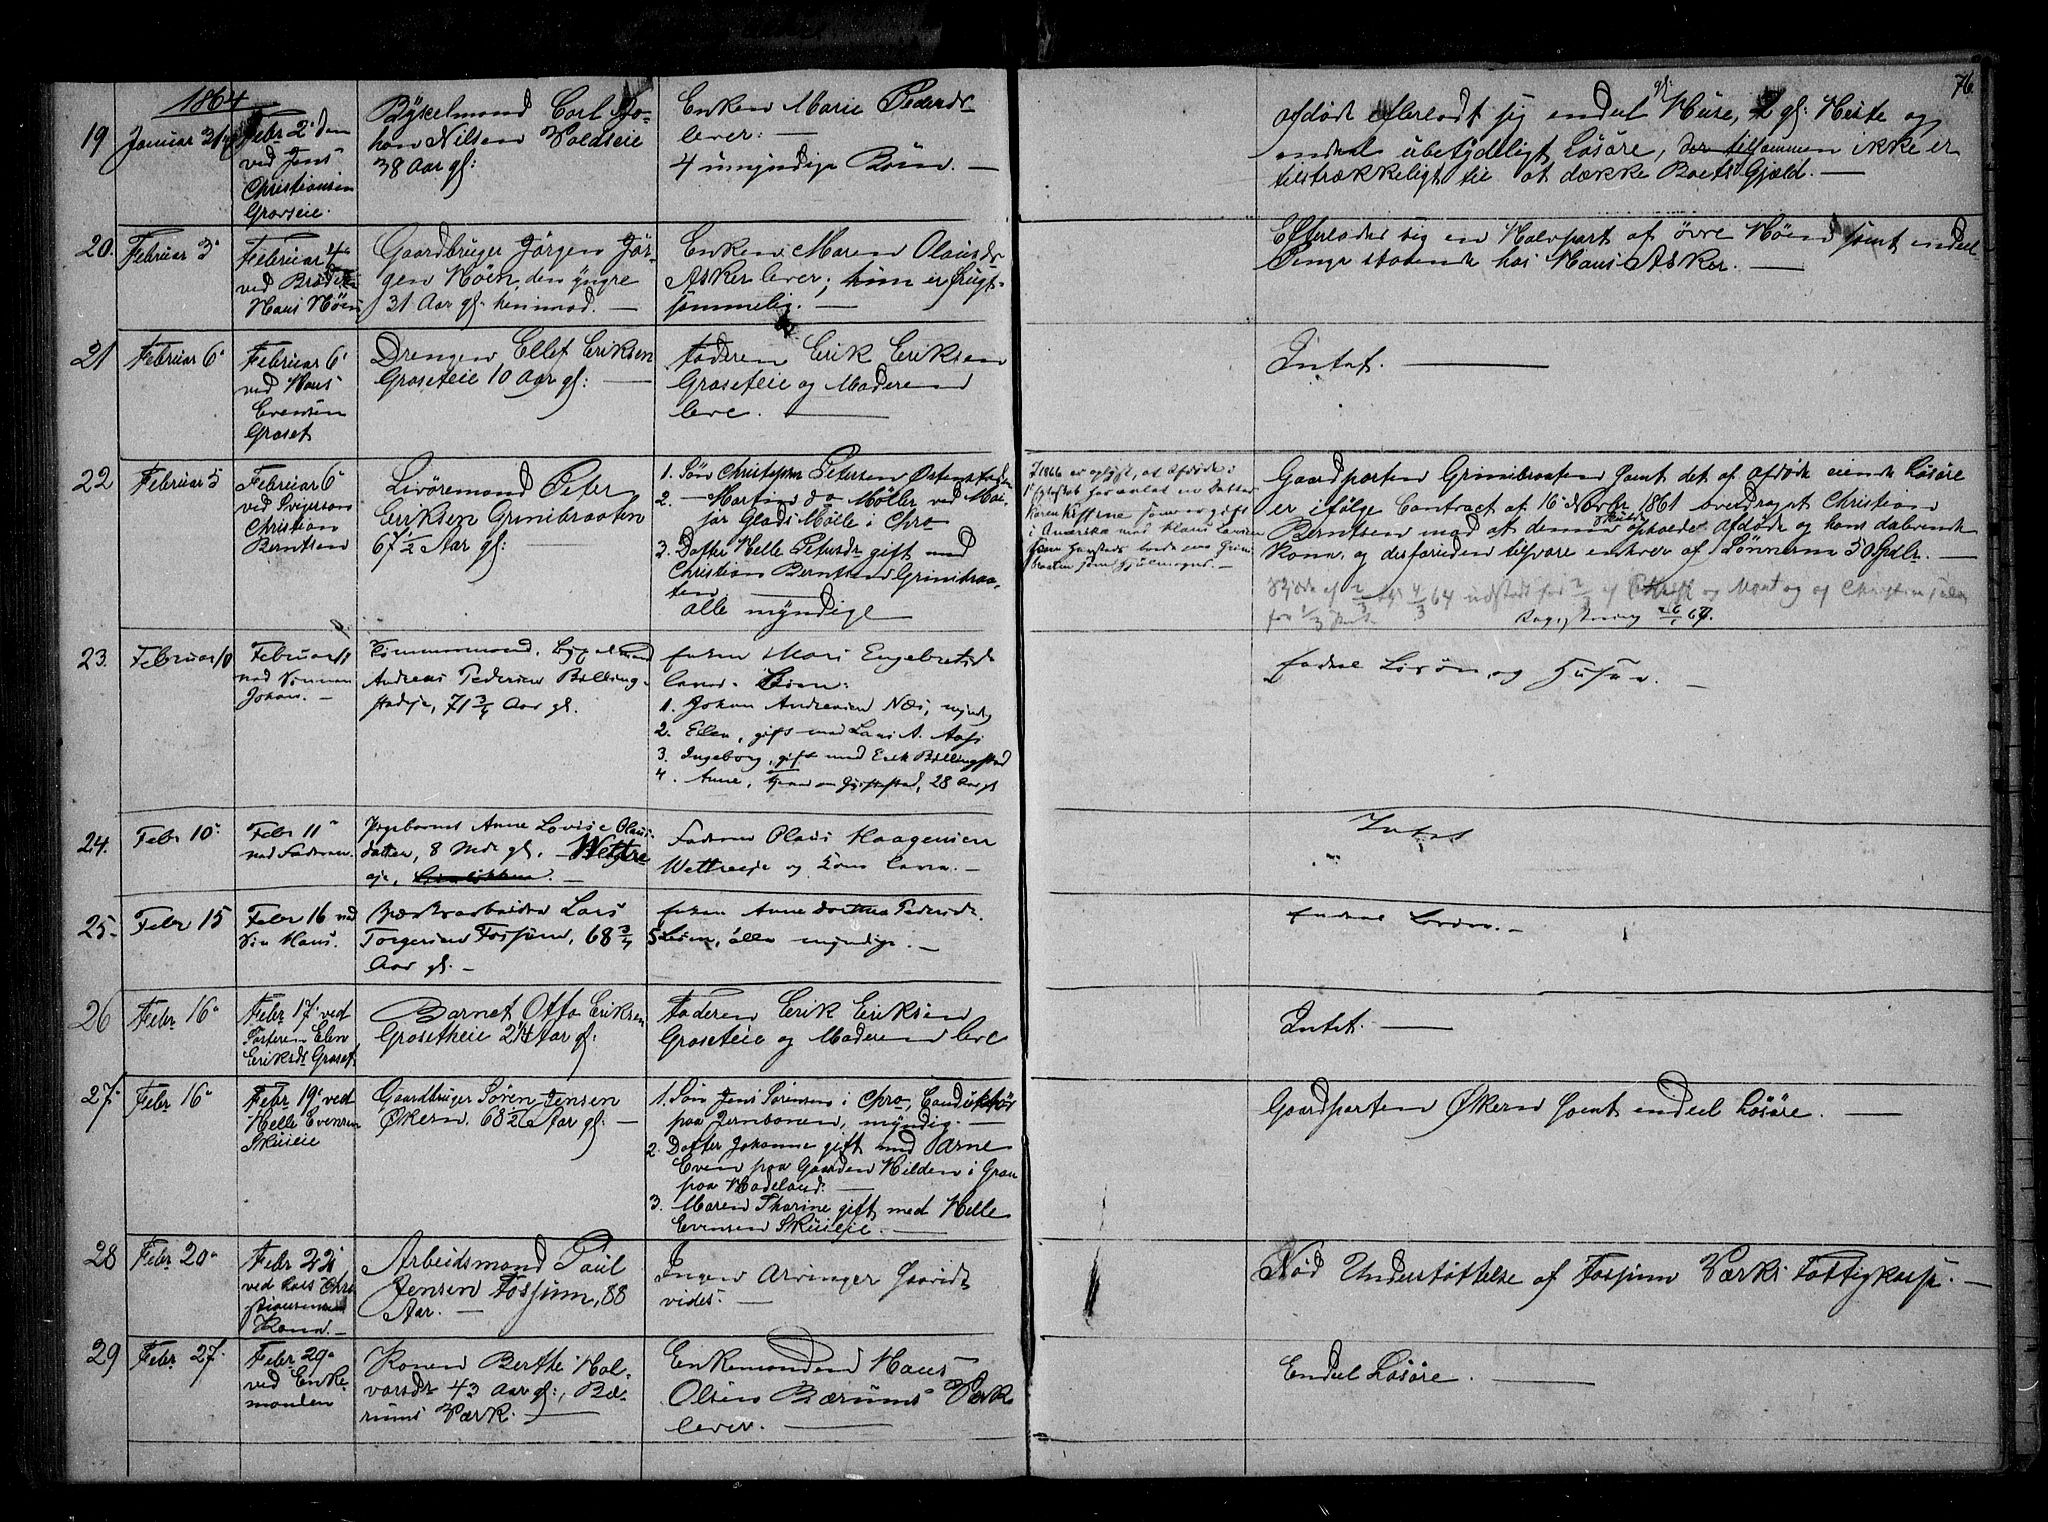 76
1864
19
Januar 31
Febr 2 den
ved Jens
Christiansen
Gravseie.
Bÿxelmand Carl Jo-
han Nilsen Voldseie
38 Aar gl:
Enken Marie Pedersdr
lever. —
4 umyndige Börn. —
afdøde efterlodt sig endeel gl: Huse, 2 gl: Heste og
endeel ubetydeligt Løsøre, der tilsammen ikke er
tilstrækkeligt til at dække Boets Gjæld. —
20.
Februar 3
Februar 4
ved Broderen
Hans Höen
Gaardbruger Jörgen Jör-
gen Höen, den yngre
31 Aar gl. henimod. —
Enken Maren Olausdr
Asker lever; hun er frugt-
sommelig. —
Efterlader sig en Halvpart af övre Höen samt endeel
Penge staaende hos Hans Asker. —
21
Februar 6
Februar 6
ved Hans
Evensen
Groset
Drengen Ellef Eriksen
Groseteie 10 Aar gl: —
Faderen Erik Eriksen
Groseteie og Moderen
leve. —
Intet. —
22
Februar 5
Februar 6
ved Svigersøn
Christian
Berntsen
Livöremand Peter
Eriksen Grinibraaten
67½ Aar gl: —
1. Søn Christopher Petersen Østenstad
2. — Martin do Möller ved Ma-
jor Glads Mölle i Chra
3. Datter Helle Petersdr gift med
Christian Berntsen Grinibraa-
ten. —
alle myndige
I 1866 er oplyst, at Afdøde i
i Amerika med Hans
Gaardparten Grinibraaten samt det af afdøde eiende Løsøre
er ifølge Contract af 16 Novbr 1861 overdraget Christian
Berntsen mod at denne skulde opholde Afdøde og hans dalevende
Kone, og desforuden tilsvare enhver af Sønnerne 50 Spdlr. —
Skjöde af 2/3 4/3 64 udstedt for 2/3 af og Mart og af Christian
for 1/3
67.
23.
Februar 10
Februar 11
ved Sønnen
Johan. —
Andreas Pedersen Billing-
stadeje, 71 3/4 Aar gl.
Enken Mari Engebretsdr
lever. Børn:
1. Johan Andreasen Næs, myndig
2. Ellen, gift med Lars A.
3. Ingeborg, gift med Erik Billingstad
4. Anne, 28 Aar gl
Endeel Løsøre og Huse. —
24.
Febr 10
Febr 11
ved Faderen.
Pigebarnet Anne Lovise Olaus-
datter, 8 Mdr gl. — Wettre
eje, —
Faderen Olaus Haagensen
Wettreeje og Kone leve. —
Intet
25.
Febr 15
Febr 16 ved
Søn Hans.
Værksarbeider Lars
Torgersen Fossum, 68 3/4
Aar gl. —
Enken Anne Dorthea Pedersdr.
5 Børn, alle myndige. —
Endeel Løsøre. —
26
Febr 16
Febr 17 ved
Søsteren Elen
Eriksdr Groset
Barnet Otto Eriksen
Grosetheie 2¼ Aar gl:
Faderen Erik Eriksen
Groseteie og Moderen leve
Intet. —
27
Febr 16
Febr 19 ved
Helle Evensen
Skuieie
Gaardbruger Sören Jensen
Økern. 68½ Aar gl: —
1. Søn Jens Sørensen i Chra, Conduktör
paa Jernbanen, myndig. —
2. Datter Johanne gift med Arne
Even paa Gaarden Hilden i Gran
paa Hadeland. —
3. Maren Thorine gift med Helle
Evensen Skuieie. —
Gaardparten Økern samt endeel Løsøre. —
28
Febr 20
Febr 22
ved Lars Chri-
stiansens
Kone. —
Arbeidsmand Paul
Jensen Fossum, 88
Aar. —
Ingen Arvinger haavidt
vides. —
Nød Understøttelse af Fossum Værks Fattigkasse. —
29
Febr 27
Febr 29
ved Enke-
manden
Konen Berthe Hal-
vorsdr 43 Aar gl:, Bæ-
rums Værk. —
Enkemanden Hans
Olsen Bærums Værk
lever. —
Endeel Løsøre. —